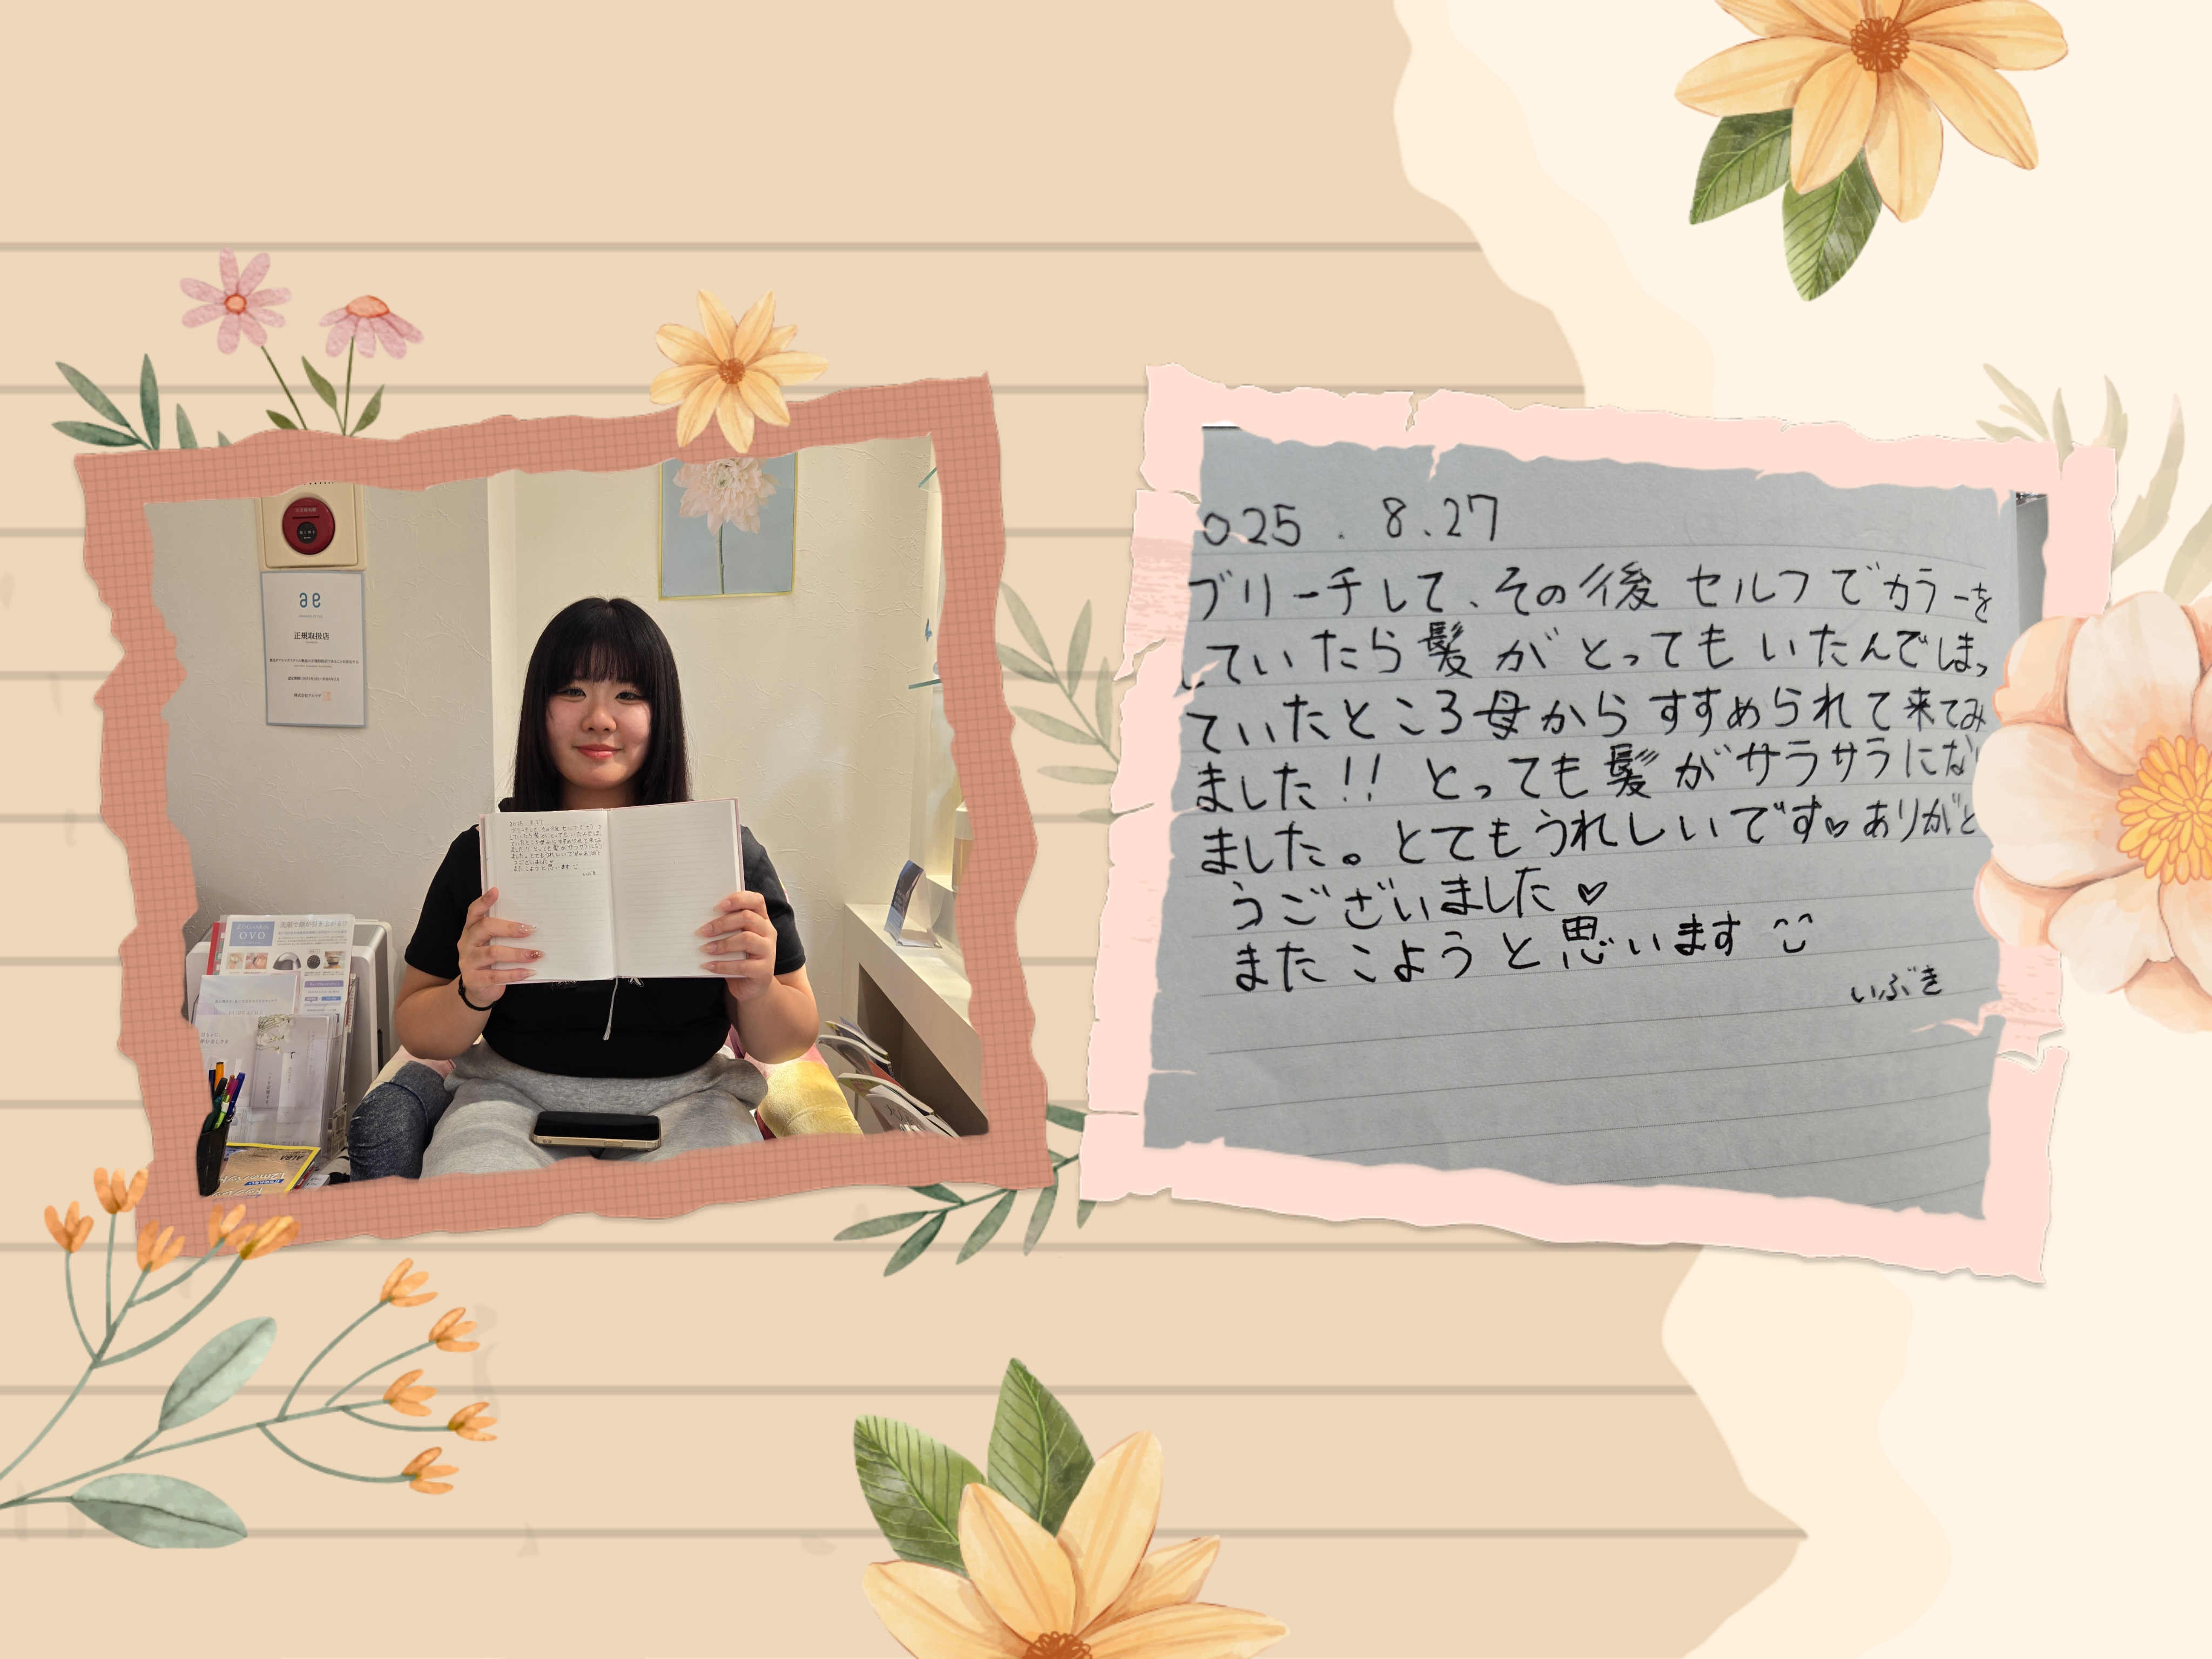 ae
正規取扱店
OVO
025 . 8.27
ブリーチして、その後 セルフでカラーを
していたら髪がとってもいたんでしまっ
ていたところ母からすすめられて来てみ
ました!! とっても髪がサラサラになり
ました。とてもうれしいです♥ありがと
うございました♡
またこようと思います
いぶき